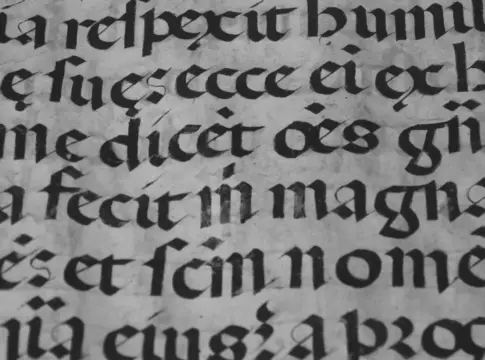 ia respexit humil
ę suę: ecce ei ex h
me dicēt oēs gn̄
a fecit m̄ magna
ēs et scm̄ nomē
n̄a eius: a proḡ